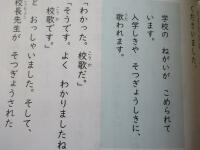 くださいました。
学校の　ねがいが　こめられて
います。
入学しきや　そつぎょうしきに、
歌われます。
「わかった。校歌だ。」
こうか
「そうです。よく　わかりましたね
校歌です。」
こうか
と　おっしゃいました。そして、
校長先生が　そつぎょうされた